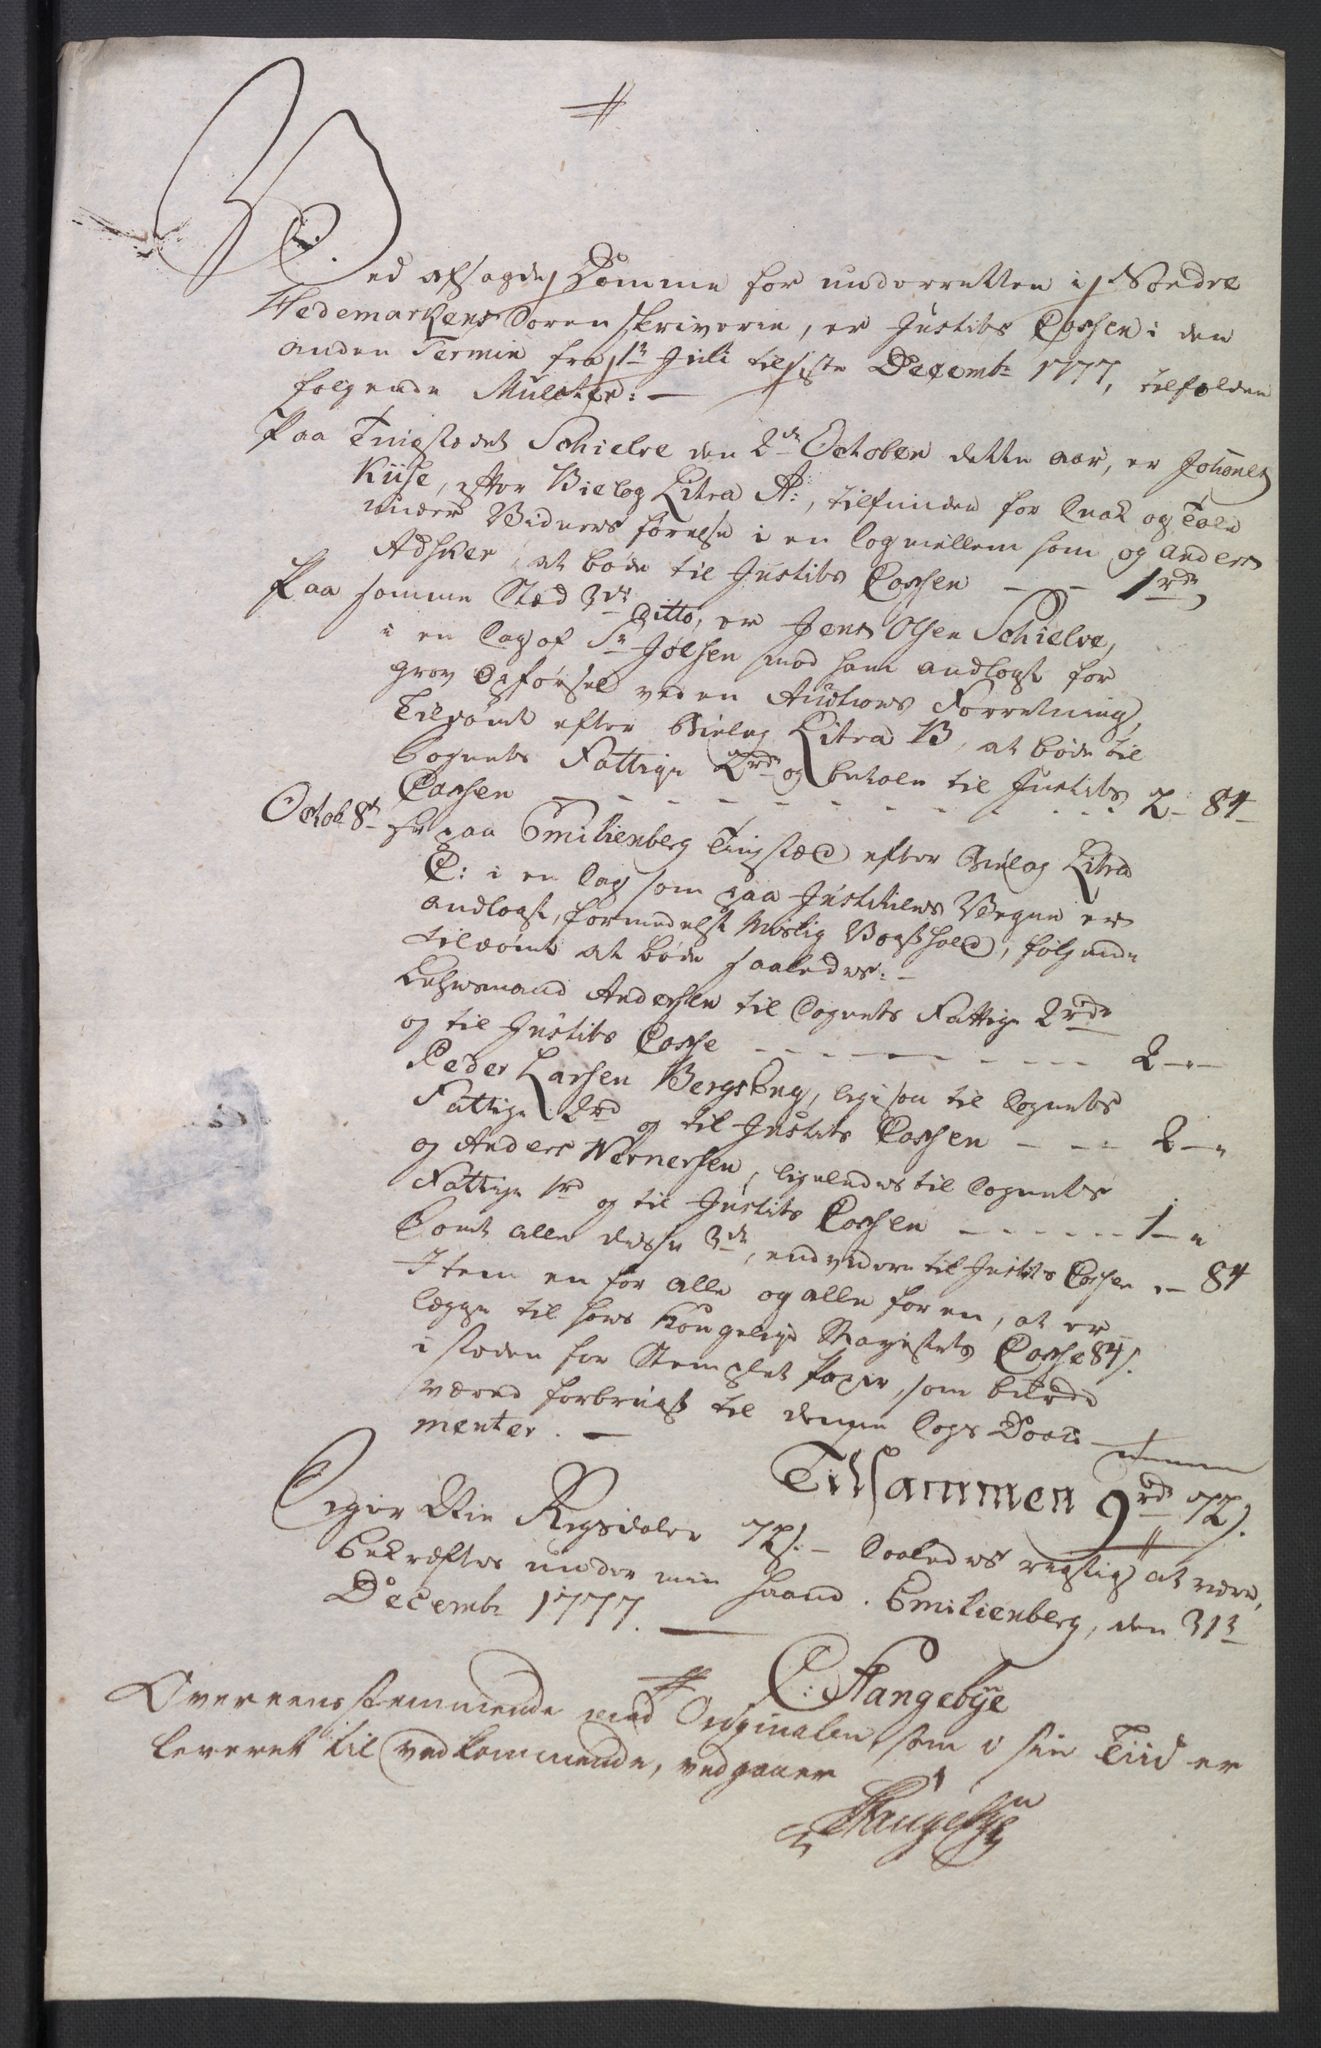 Ved afsagde Domme for underretten i Søndre
Hedemarkens Sorenskriverie, er Justits Cassen i den
anden Termin fra 1st Juli til siste Decembr 1777, tilfalden
følgende Mulcter: —
Paa Tingstedet Schielve den 2de October dette aar, er Johanes
Kiise, efter Bielag Litra A:, tilfunden for Snak og Tale
under Vidners førelse i en Sag mellem ham og Anders
Adsker, at bøde til Justits Cassen — — 1rd
Paa samme Sted 3de Ditto, er Jens Olsen Schielve,
i en Sag af Sr Jølsen mod ham anlagt for
grov Opførsel ved en Auctions Forretning,
Tildømt efter Bielag Litra B, at bøde til
Sognets Fattige 2rd og betale til Justits
Cassen - - - - - - - 2 - 84 -
Octobr 8de er paa Emilienberg Tingsted efter Bielag Litra
C: i en Sag som paa Justitiens Vegne er
andlagt, formedelst Mislig Vegthold, følgende
tildømt at bøde saaledes: -
Lehnsmand Andersen til Sognets Fattige 2rd
og til Justits Casse - - - - - - 2 - " -
Peder Larsen Bergseng, ligesaa til Sognets
Fattige 2rd og til Justits Cassen - - - 2 - "
og Anders Wernersen, ligeledes til Sognets
Fattige 1rd og til Justits Cassen - - - - 1 - "
Samt alle disse 3de, endvidere til Justits Cassen " - 84
Item en for alle og alle for en, at er
lægge til hans Kongelige Mayestets Casse 84 s.
i steden for Stemplet Papir, som burde
været forbrugt til denne Sags Docu-
menter. —
Tilsammen 9rd 72 s.
Siger Nie Rigsdaler 72 s. - Saaledes rigtig at være,
bekræftes under min Haand. Emilienberg, den 31te
Decembr 1777. —
C: Stangebye
Overeensstemmende med Originalen, som i sin Tiid er
leveret til vedkommende, vedgaaer
Stangebye